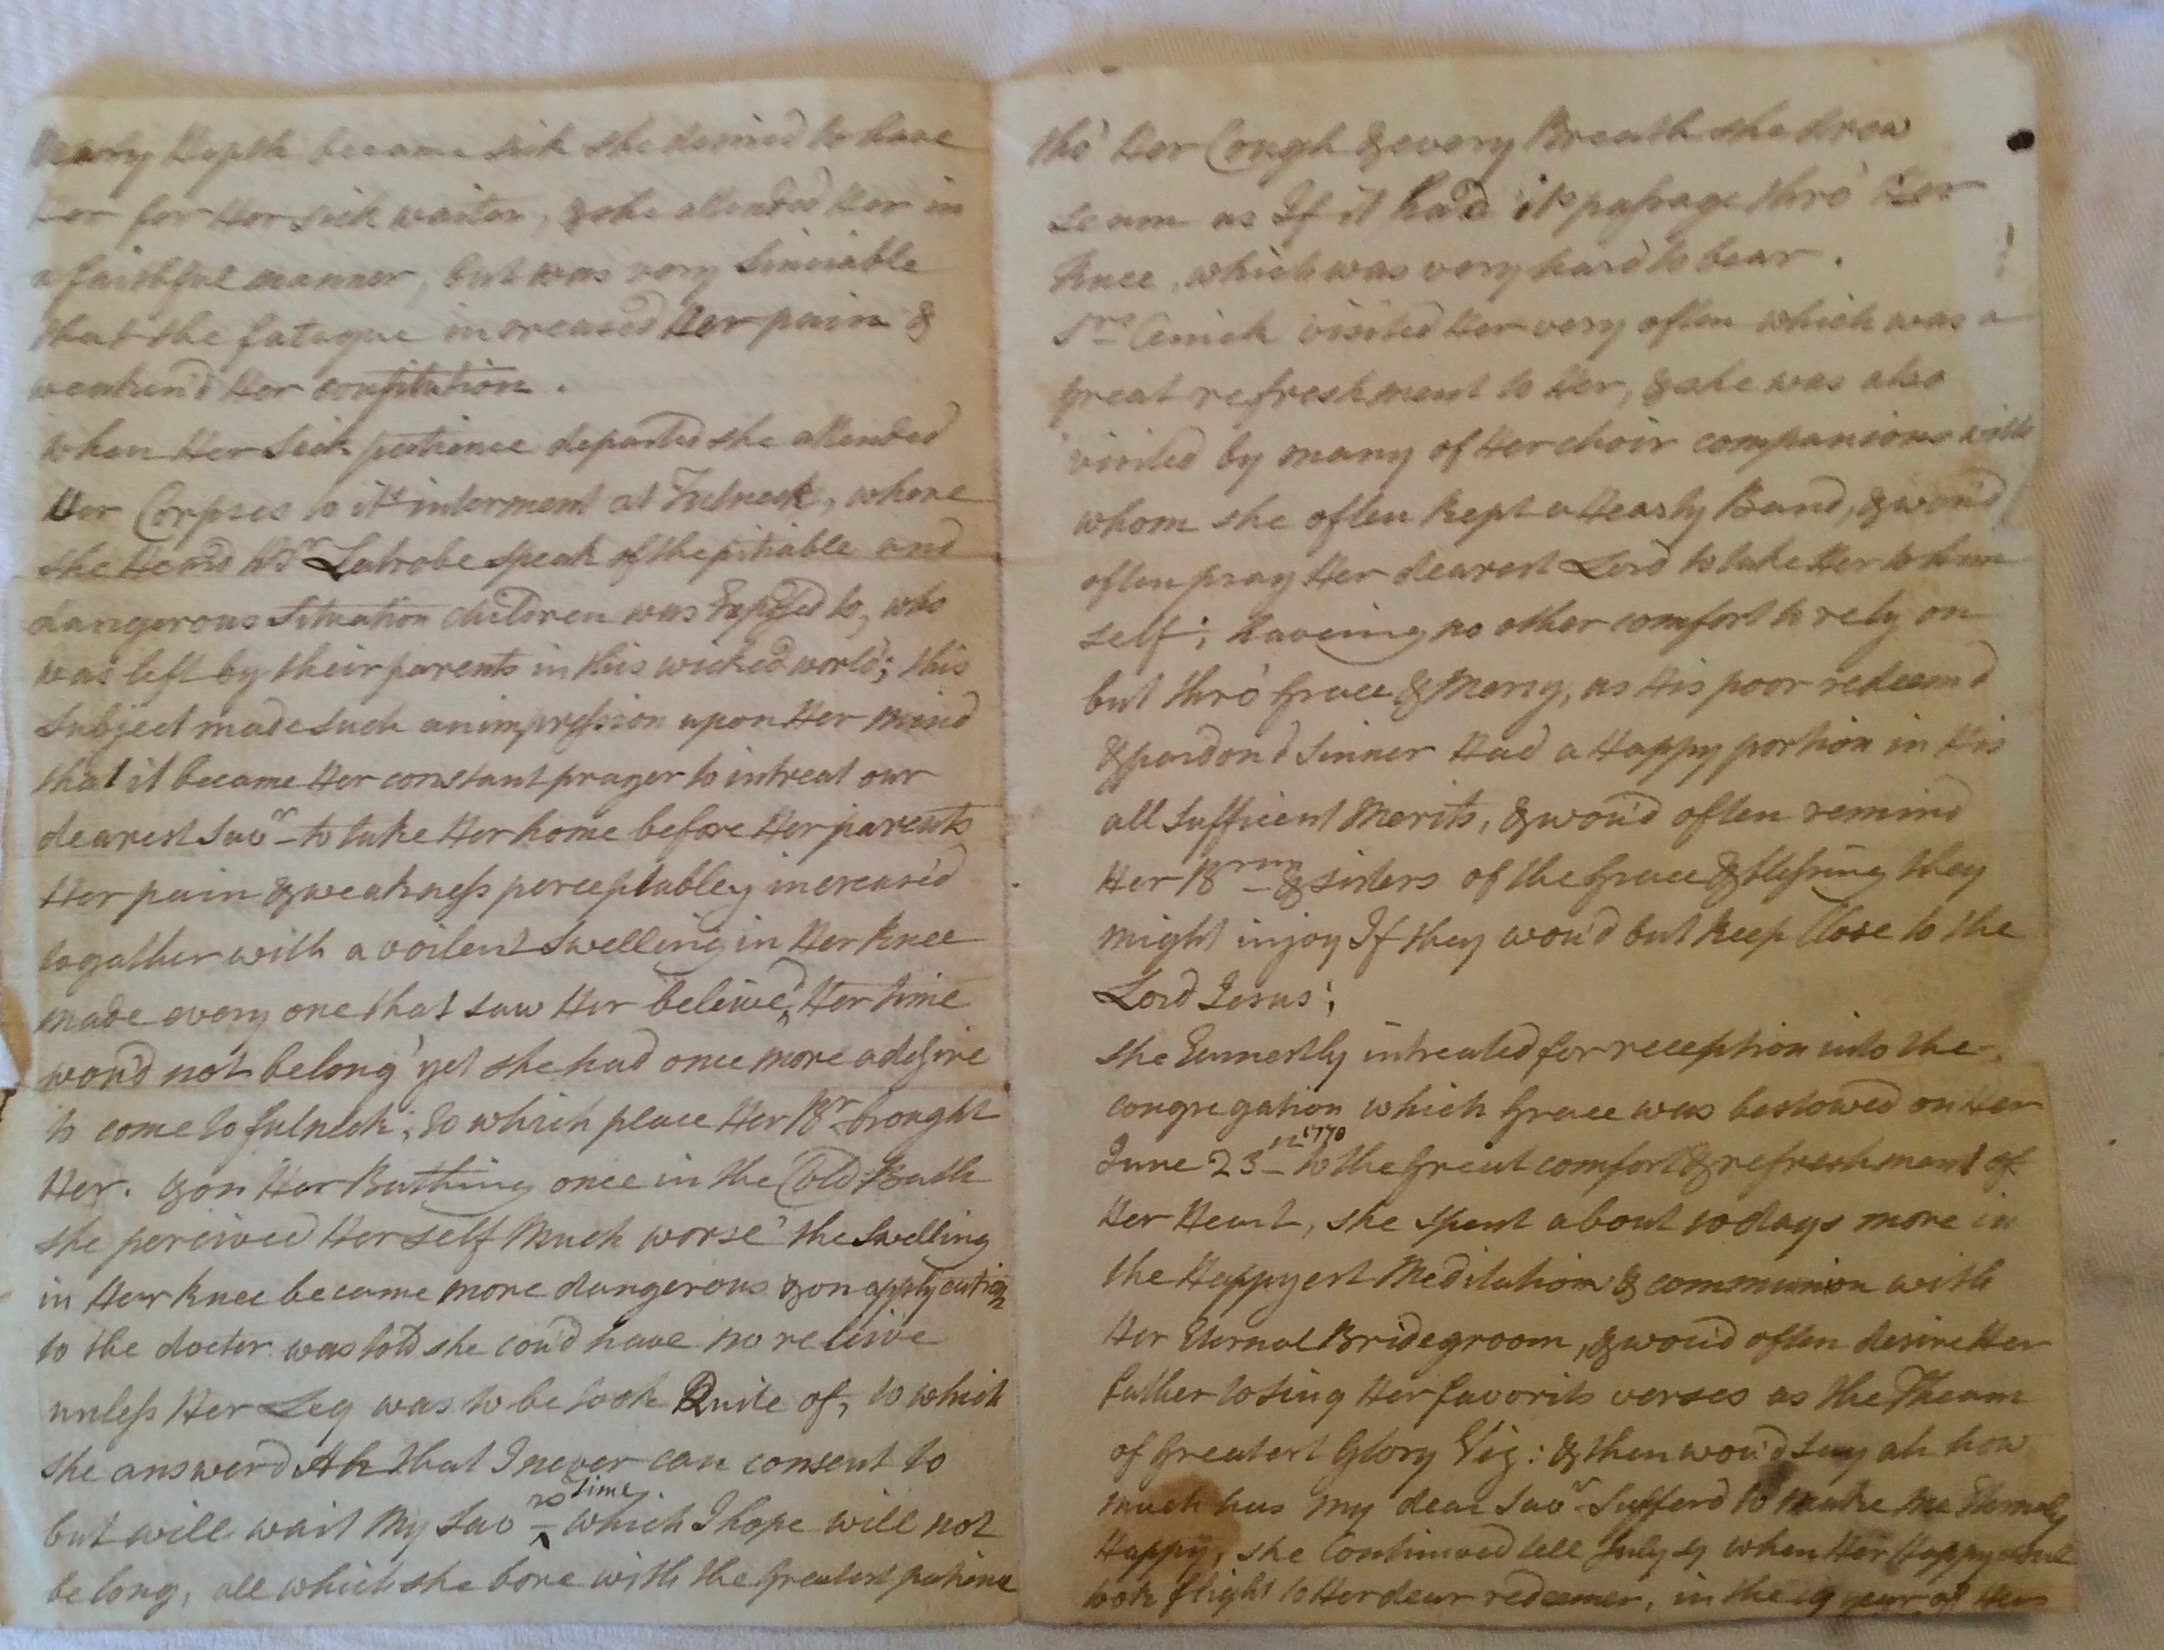 Mary Hepth became sick she desired to have
Her for Her sick waiter, & she attended Her in
a faithful manner, but was very sinciable
that the fatague increased Her pain &
weaken'd Her constitution.
when Her Sick patience departed she attended
Her Corpses to its interment at Fulneck, where
she Heard Br Latrobe speak of the pitiable and
dangerous Situation children was Exposed to, who
was left by their parents in this wicked world; this
subject made such an impression upon Her mind
that it became Her constant prayer to intreat our
dearest Savr to take Her home before Her parents
Her pain & weakness perceptabley increased
togather with a voilent Swelling in Her knee
made every one that saw Her beleive'd Her time
wou'd not be long' yet she had once more a desire
to come to fulneck; to which place Her Br brought
Her. & on Her Bathing once in the Cold Bath
she perceived Her self Much worse' the Swelling
in Her knee became more dangerous & on applycation
to the docter was told she cou'd have no releive
unless Her Leg was to be took Quite of, to which
she answerd Ah that I never can consent to
but will wait My Savrs time. which I hope will not
be long, all which she bore with the Greatest patience
tho' Her Cough & every Breath she drew
seam as If it had its passage thro' Her
Knee, which was very hard to bear.
Srs Cennick visited Her very often which was a
great refreshment to Her, & she was also
visited by many of Her choir companions with
whom she often kept a Hearty Band, & wou'd
often pray Her dearest Lord to take Her to him
self; haveing no other comfort to rely on
but thro' Grace & Mercy, as His poor redeem'd
& pardon'd Sinner Had a Happy portion in His
all Sufficient Merits, & wou'd often remind
Her Brn & Sisters of the Grace & Blessing they
might injoy If they wou'd but keep Close to the
Lord Jesus;
she Earnestly intreated for reception into the
congregation which Grace was bestowed on Her
June 23 1770 to the Great comfort & refreshment of
Her Heart, she spent about 10 days more in
the Happyest Meditation & communion with
Her Eternal Bridegroom, & wou'd often desire Her
father to Sing Her favorits verses as the Theam
of Greatest Glory Viz: & then wou'd say ah how
much has my dear Savr Sufferd to make me Eternaly
Happy, she Continued till July when Her Happy soul
took flight to Her dear redeemer, in the 19 year of Her